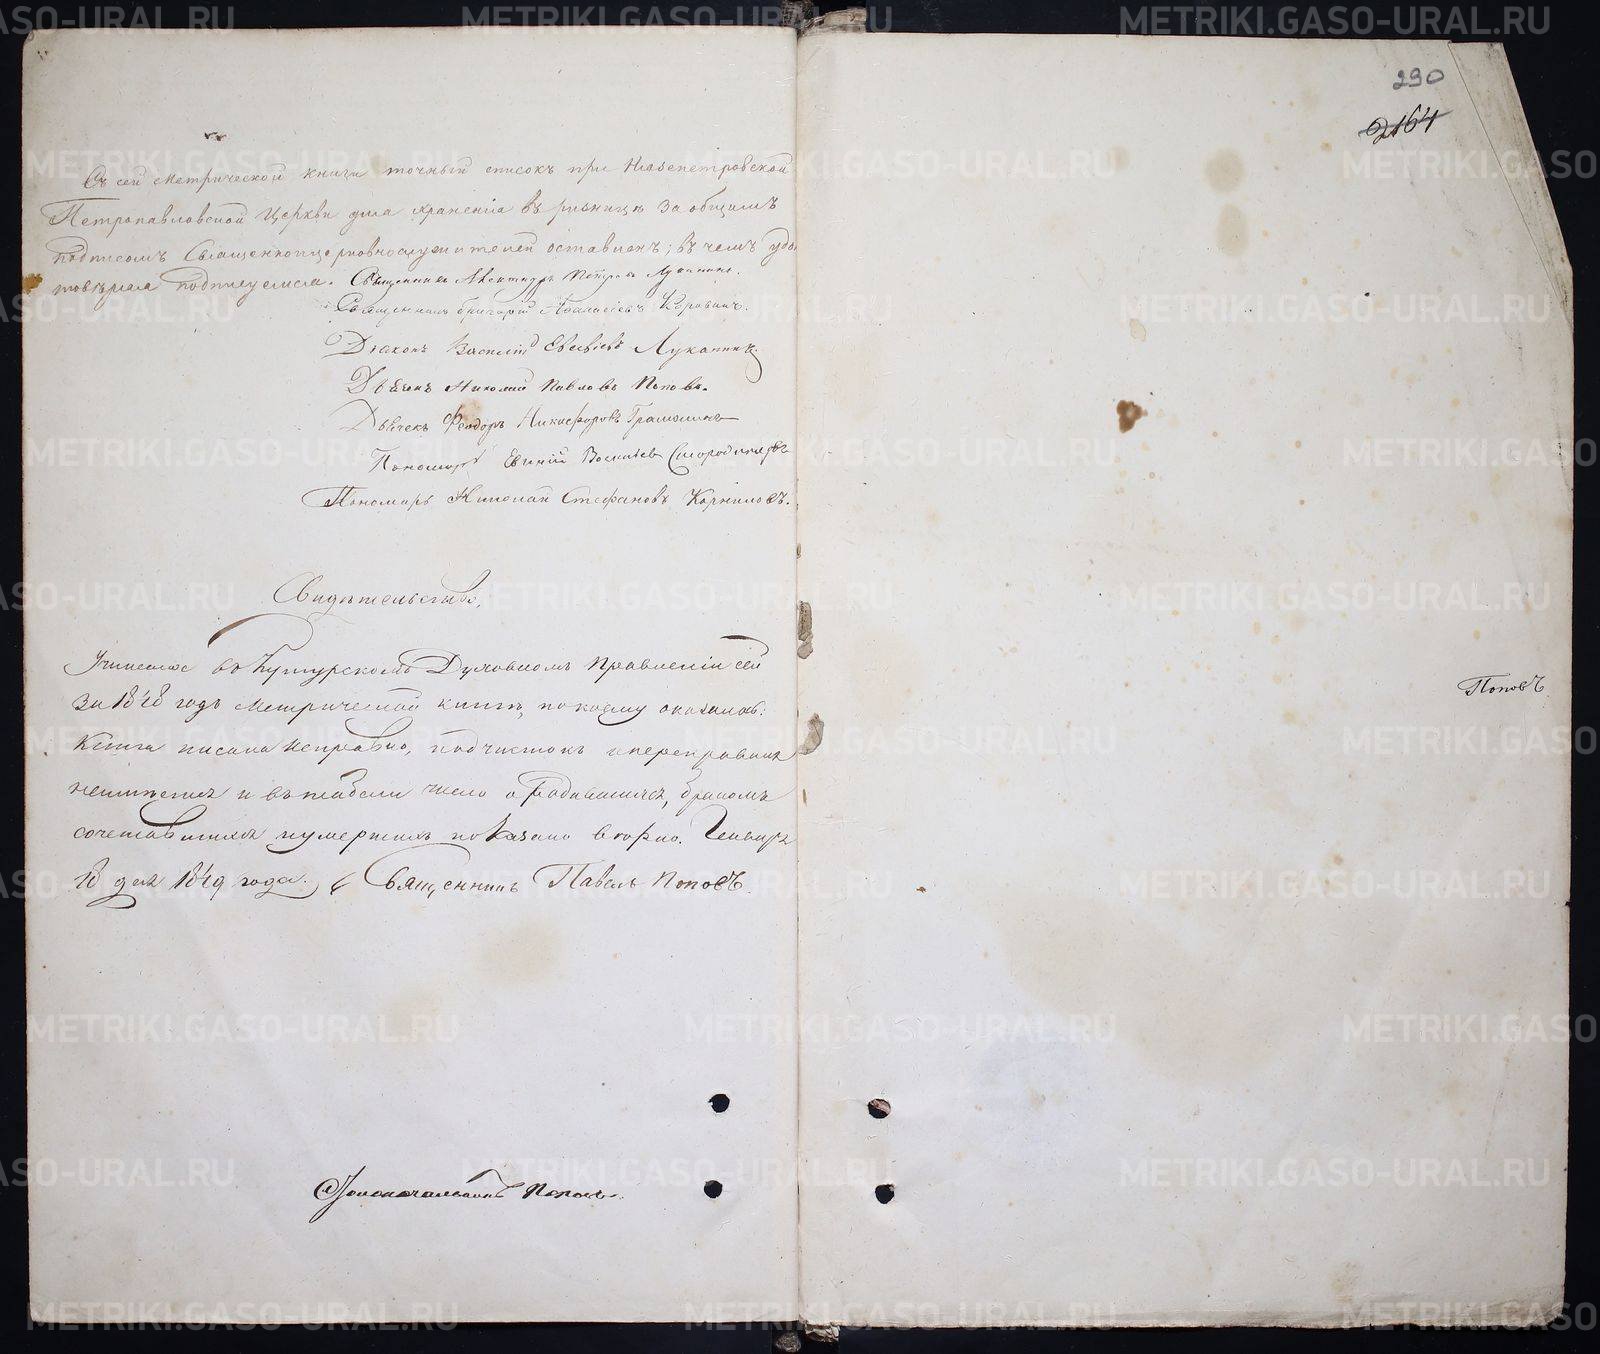 Съ сей Метрической книги точный списокъ при Нязепетровской
Петропавловской Церкви для храненія въ ризницѣ за общимъ
подписомъ Священноцерковнослужителей оставленъ; въ чемъ удо
товѣряя подписуемся. Священникъ Петръ Луканинъ.
Священникъ Григорій Аѳанасіевъ Коровинъ.
Діаконъ Василій Евсевіевъ Луканинъ.
Дьячекъ Николай Павловъ Поповъ.
Дьячекъ Феодоръ Никифоровъ Грамолинъ
Пономарь Евгеній Васильевъ Смородинцовъ
Пономарь Николай Стефановъ Корниловъ.
Свидѣтельство,
Учинено въ Кунгурскомъ Духовномъ Правленіи сей
за 1848 годъ Метрической книгѣ, по коему оказалось:
Книга писана исправно, подчистокъ и переправокъ
неимѣетъ и въ табели число о родившихся, бракомъ
сочетавшихся и умершихъ показано вѣрно. Генваря
18 дня 1849 года. Священникъ Павелъ Поповъ.
Столоначальникъ Поповъ.
230
2164
Поповъ
METRIKI.GASO-URAL.RU